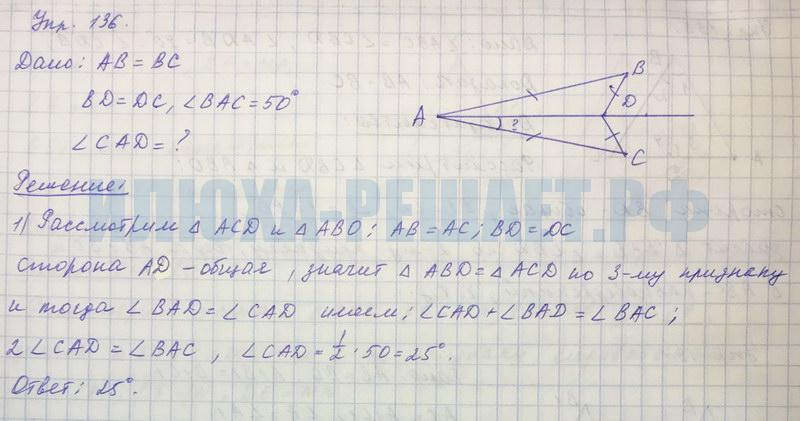 Упр. 136.
Дано: AB = BC
BD = DC, ∠BAC = 50°
∠CAD = ?
A
B
D
?
C
Решение:
ИЛЮХА-РЕШАЕТ.РФ
1) Рассмотрим △ ACD и △ ABD: AB = AC; BD = DC
сторона AD - общая, значит △ ABD = △ ACD по 3-му признаку
и тогда ∠ BAD = ∠ CAD имеем; ∠CAD + ∠BAD = ∠ BAC;
2 ∠CAD = ∠BAC, ∠CAD = 1/2 · 50 = 25°.
Ответ: 25°.